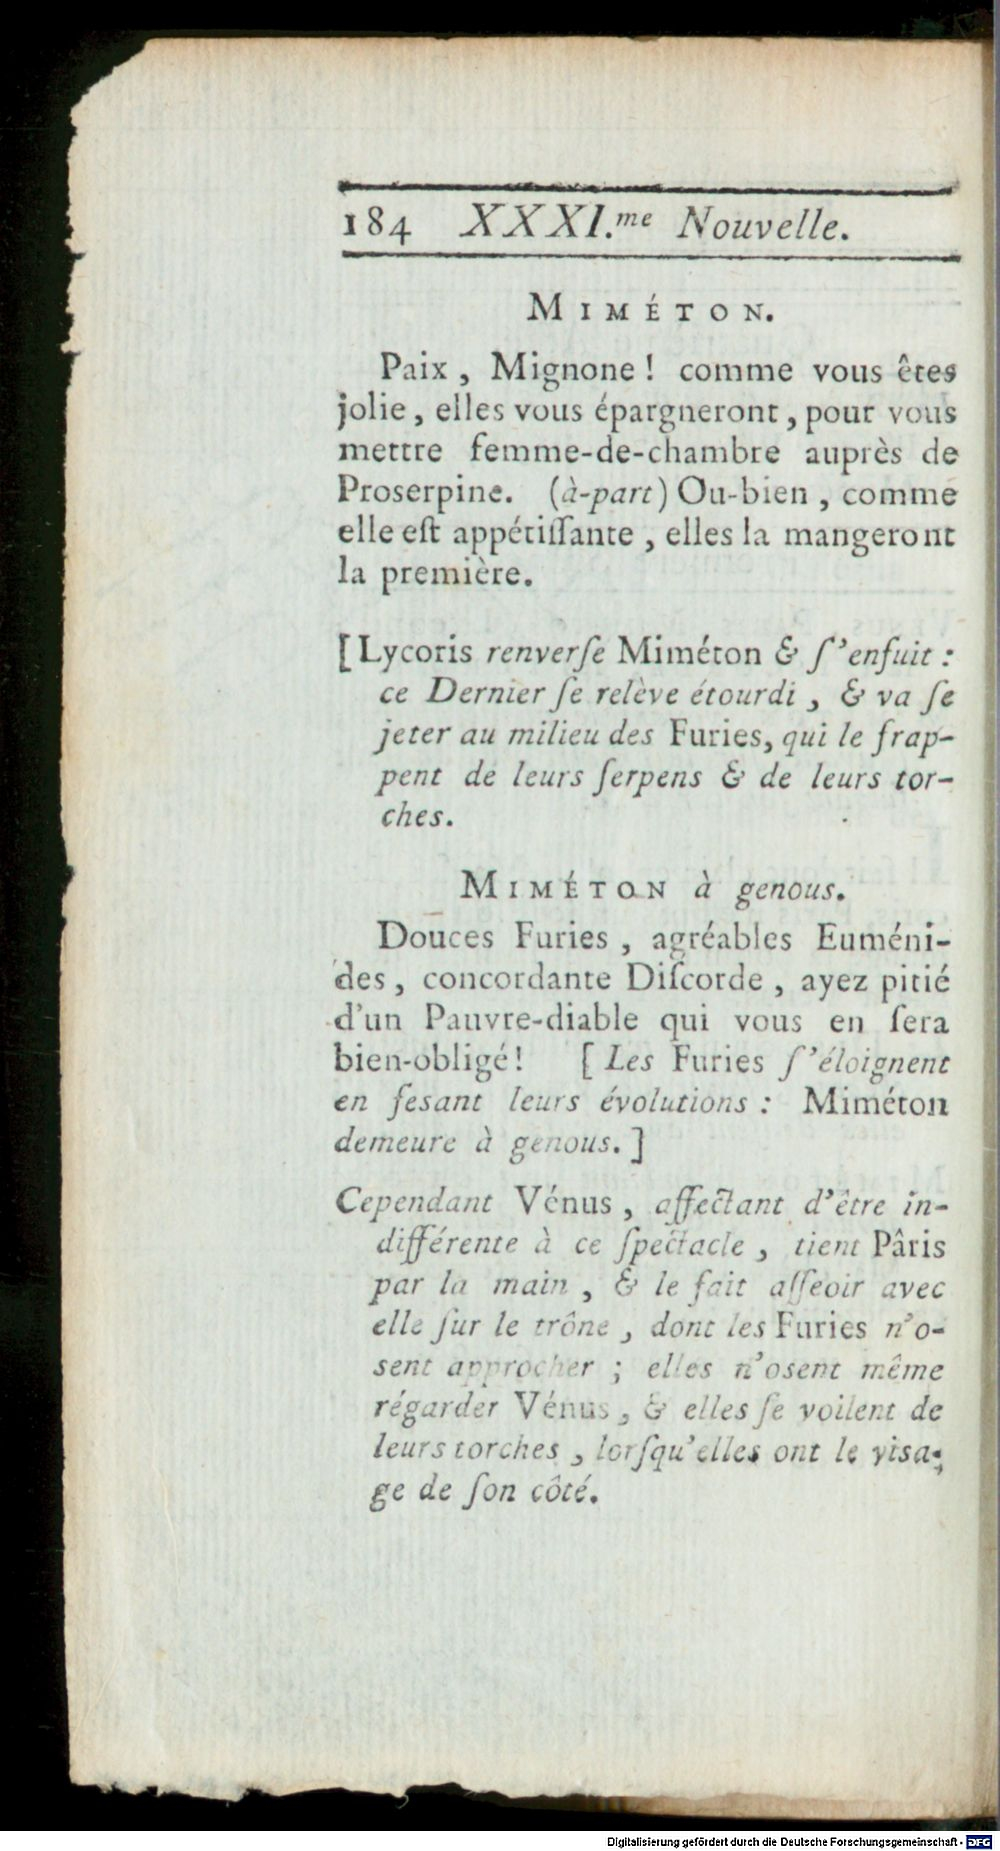 184 XXXI.me Nouvelle.
MIMÉTON.
Paix, Mignone! comme vous êtes
jolie, elles vous épargneront, pour vous
mettre femme-de-chambre auprès de
Proserpine. (à-part) Ou-bien, comme
elle est appétiſſante, elles la mangeront
la première.
[Lycoris renverſe Miméton & ſ'enfuit:
ce Dernier ſe relève étourdi, & va ſe
jeter au milieu des Furies, qui le frap-
pent de leurs ſerpens & de leurs tor-
ches.
MIMÉTON à genous.
Douces Furies, agréables Euméni-
des, concordante Diſcorde, ayez pitié
d'un Pauvre-diable qui vous en ſera
bien-obligé! [Les Furies ſ'éloignent
en feſant leurs évolutions: Miméton
demeure à genous.]
Cependant Vénus, affectant d'être in-
différente à ce ſpectacle, tient Pâris
par la main, & le fait aſſeoir avec
elle ſur le trône, dont les Furies n'o-
sent approcher; elles n'osent même
régarder Vénus, & elles ſe voilent de
leurs torches, lorſqu'elles ont le visa-
ge de ſon côté.
Digitalisierung gefördert durch die Deutsche Forschungsgemeinschaft - DFG